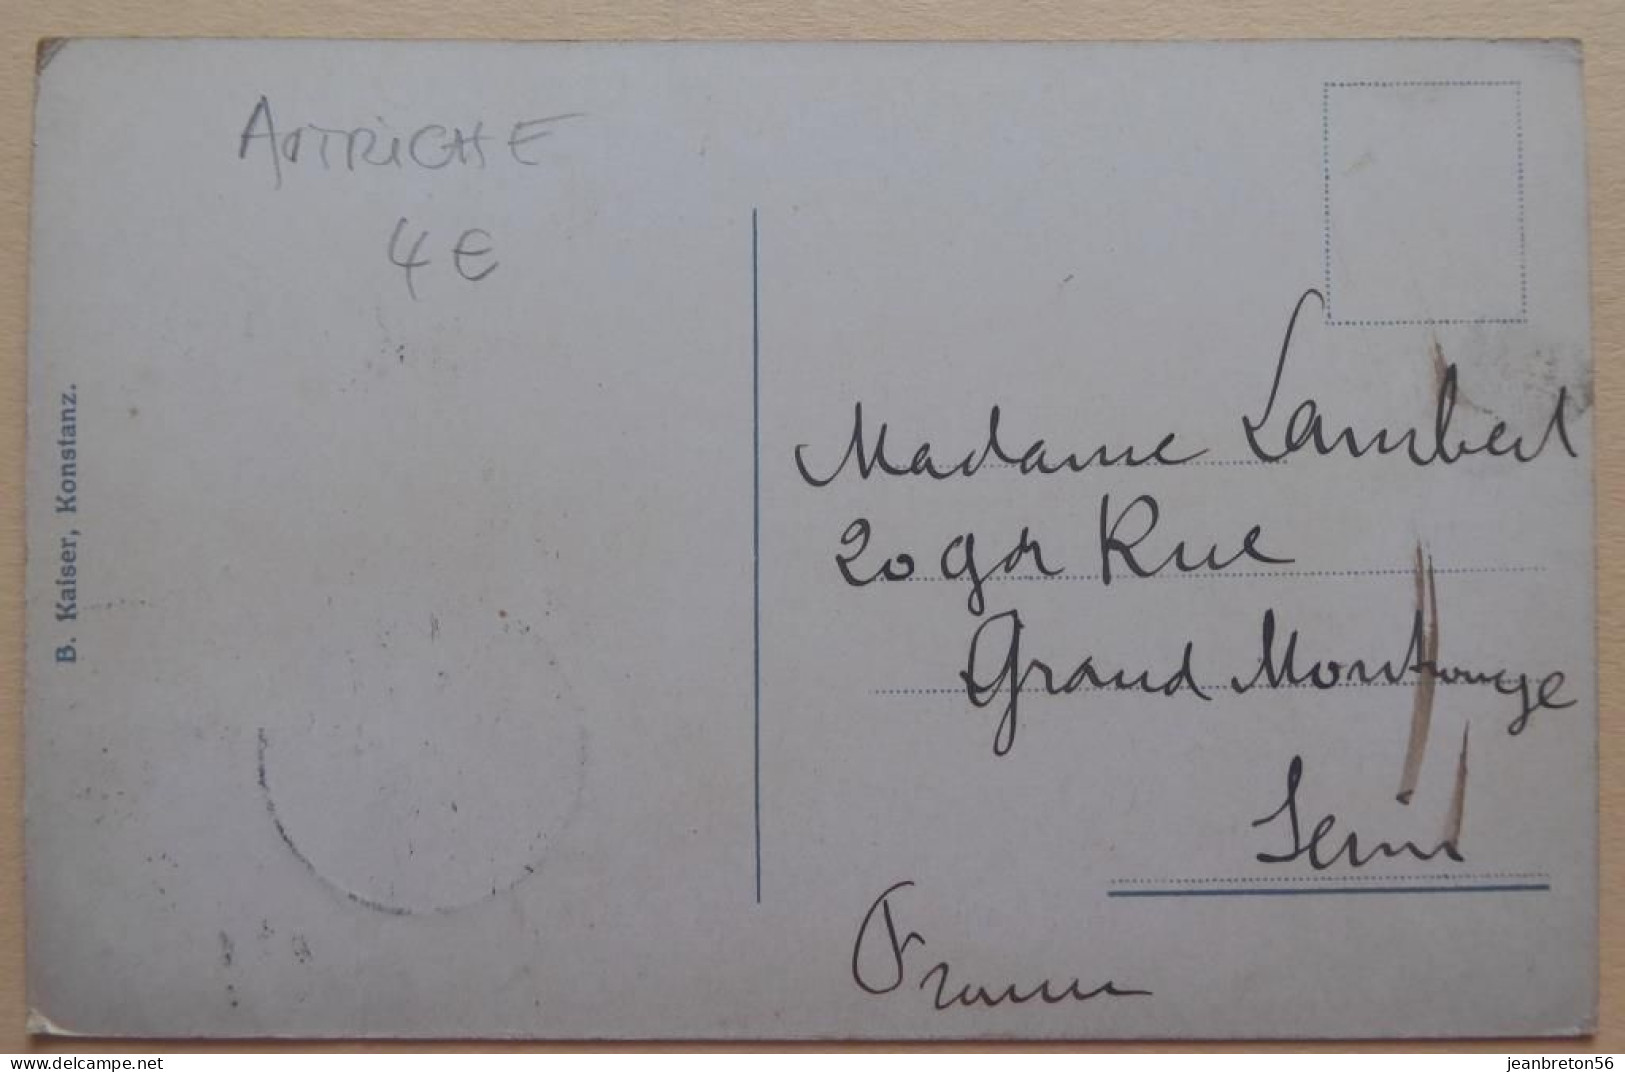 AUTRICHE
4 €
B. Kaiser, Konstanz.
Madame Lambert
20 gde Rue
Grand Montrouge
Seine
France
www.delcampe.net
jeanbreton56